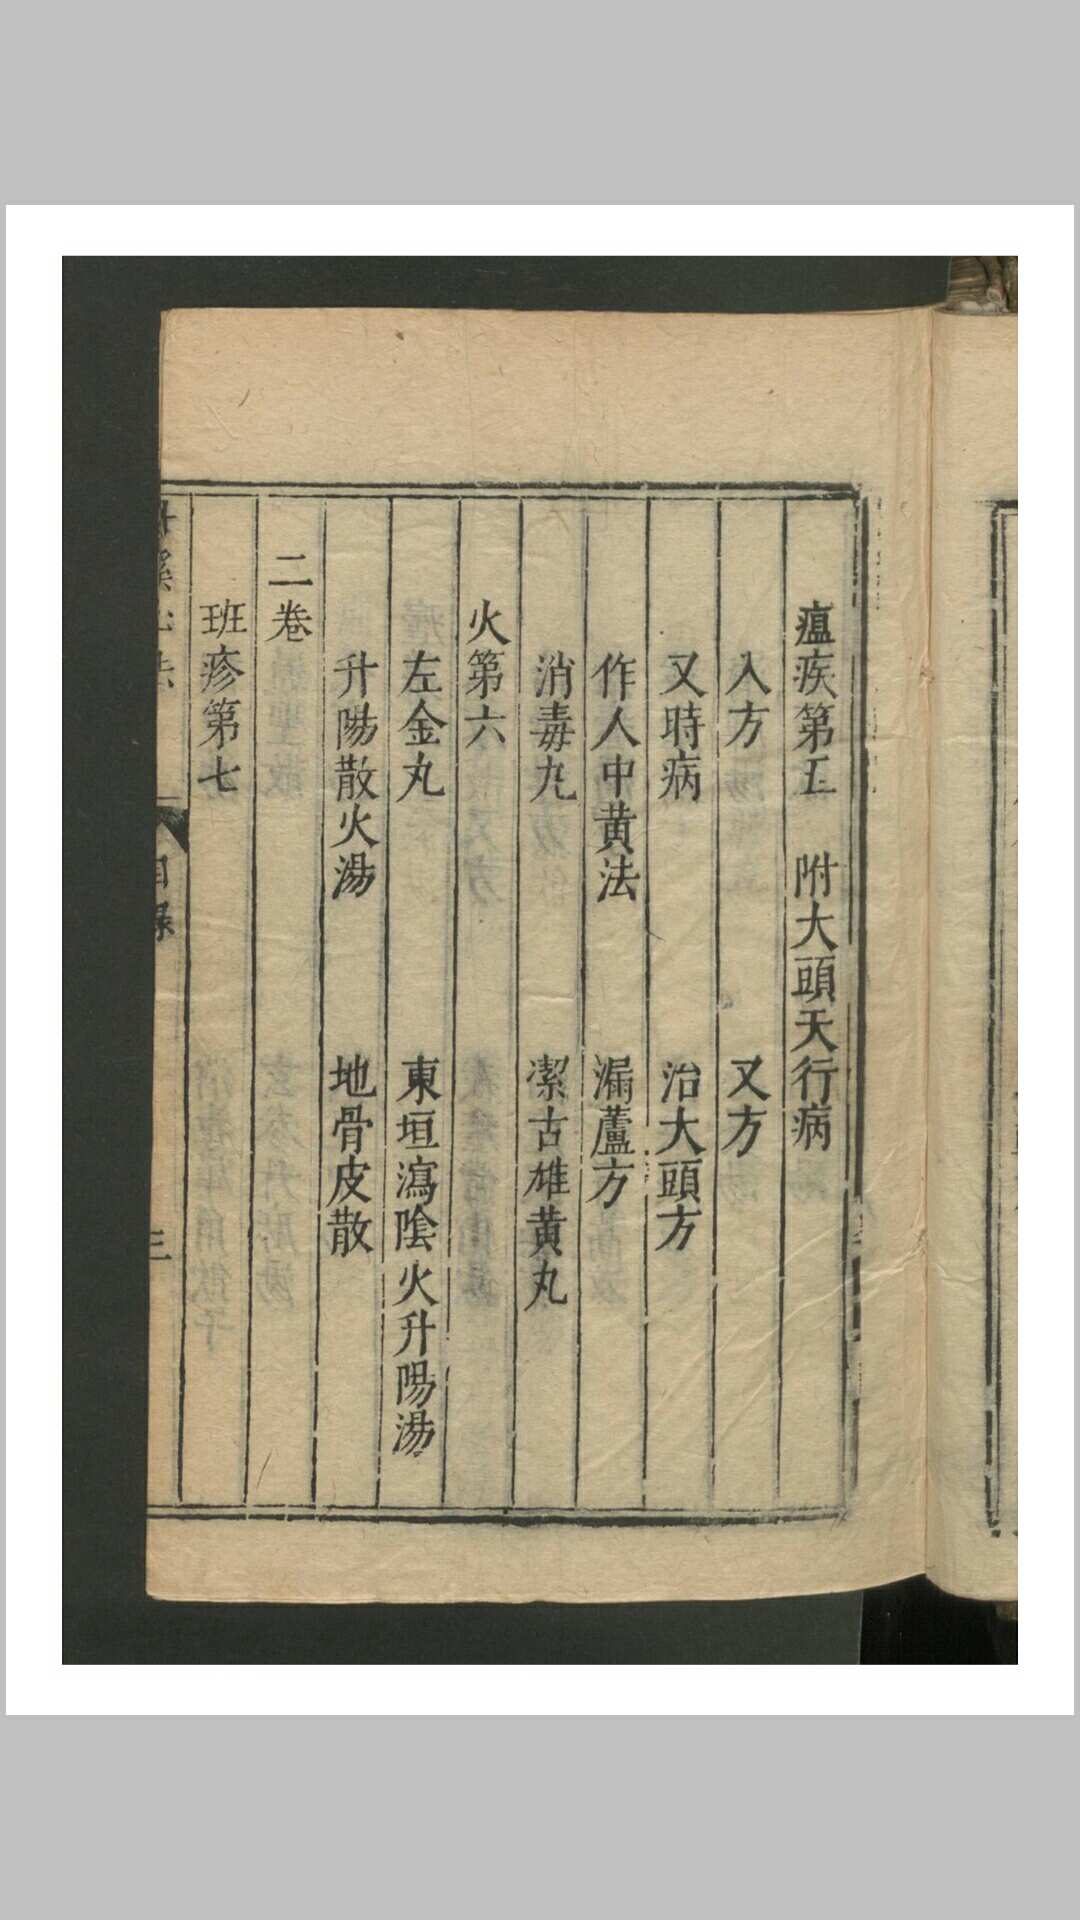 瘟疾第五 附大頭天行病
入方 又方
又時病 治大頭方
作人中黄法 漏蘆方
消毒丸 潔古雄黄丸
火第六
左金丸 東垣瀉陰火升陽湯
升陽散火湯 地骨皮散
二卷
班疹第七
丹溪心法 目錄 三